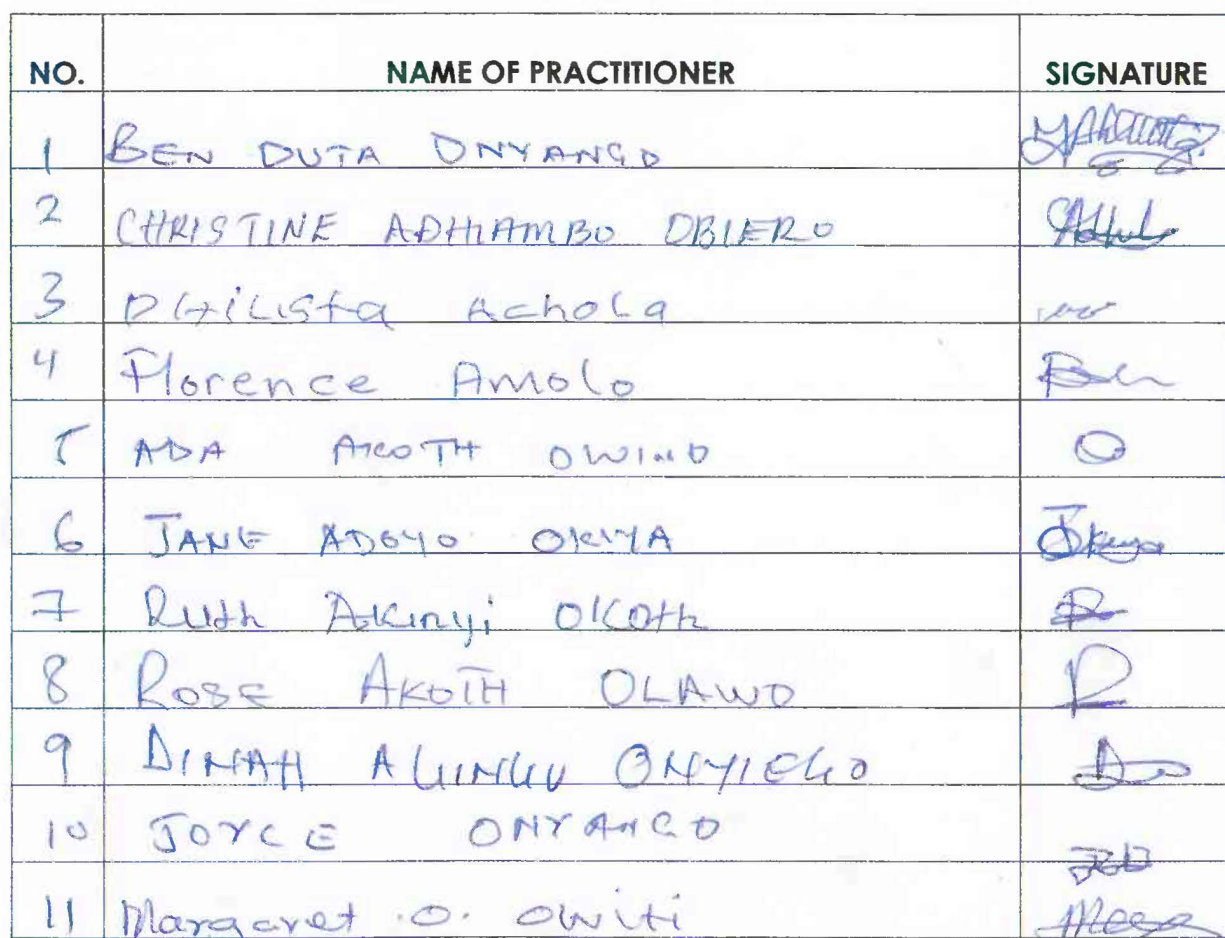 NO. NAME OF PRACTITIONER SIGNATURE
1 BEN DUTA ONYANGO
2 CHRISTINE ADHIAMBO OBIERO
3 PHILISTA Achola
4 Florence Amolo
5 ADA AKOTH OWINO
6 JANE ADOYO OKIYA
7 Ruth Akinyi OKOth
8 ROSE AKOTH OLAWO
9 DINAH ONYIEGO
10 JOYCE ONYANGO
11 Margaret .O. Owiti